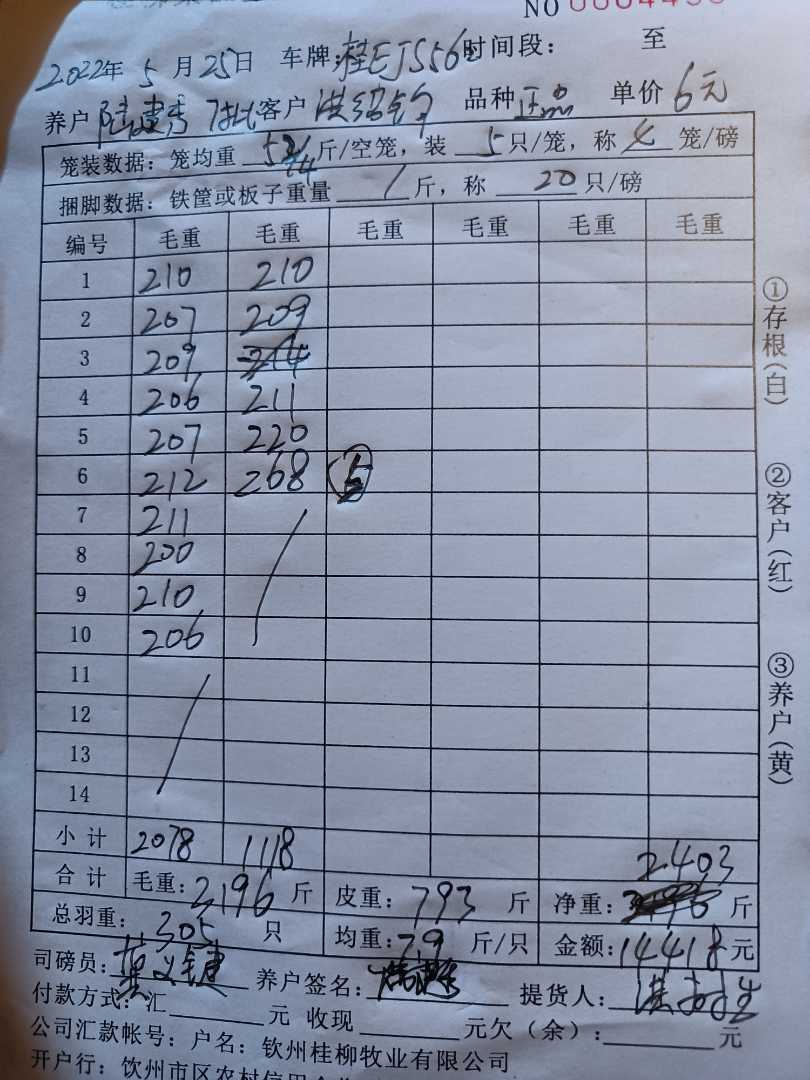 NO 0004496
2022年 5 月 25日 车牌:桂EJS56 时间段: 至
养户 陆建秀 7批 客户 洪绍 品种 正点 单价 6元
笼装数据: 笼均重 52 斤/空笼, 装 5 只/笼, 称 4 笼/磅
捆脚数据: 铁筐或板子重量 1 斤, 称 20 只/磅
编号 毛重 毛重 毛重 毛重 毛重 毛重
1 210 210
2 207 209
3 209 214
4 206 211
5 207 220
6 212 268 5
7 211
8 200
9 210
10 206
11
12
13
14
小计 2078 1118
2403
合计 毛重: 3196 斤 皮重: 793 斤 净重: 斤
总羽重: 305 只 均重: 7.9 斤/只 金额: 14418 元
司磅员: 养户签名: 提货人:
付款方式: 汇 元 收现 元欠（余）: 元
公司汇款帐号: 户名: 钦州桂柳牧业有限公司
开户行: 钦州市区农村信用
①存根(白)
②客户(红)
③养户(黄)